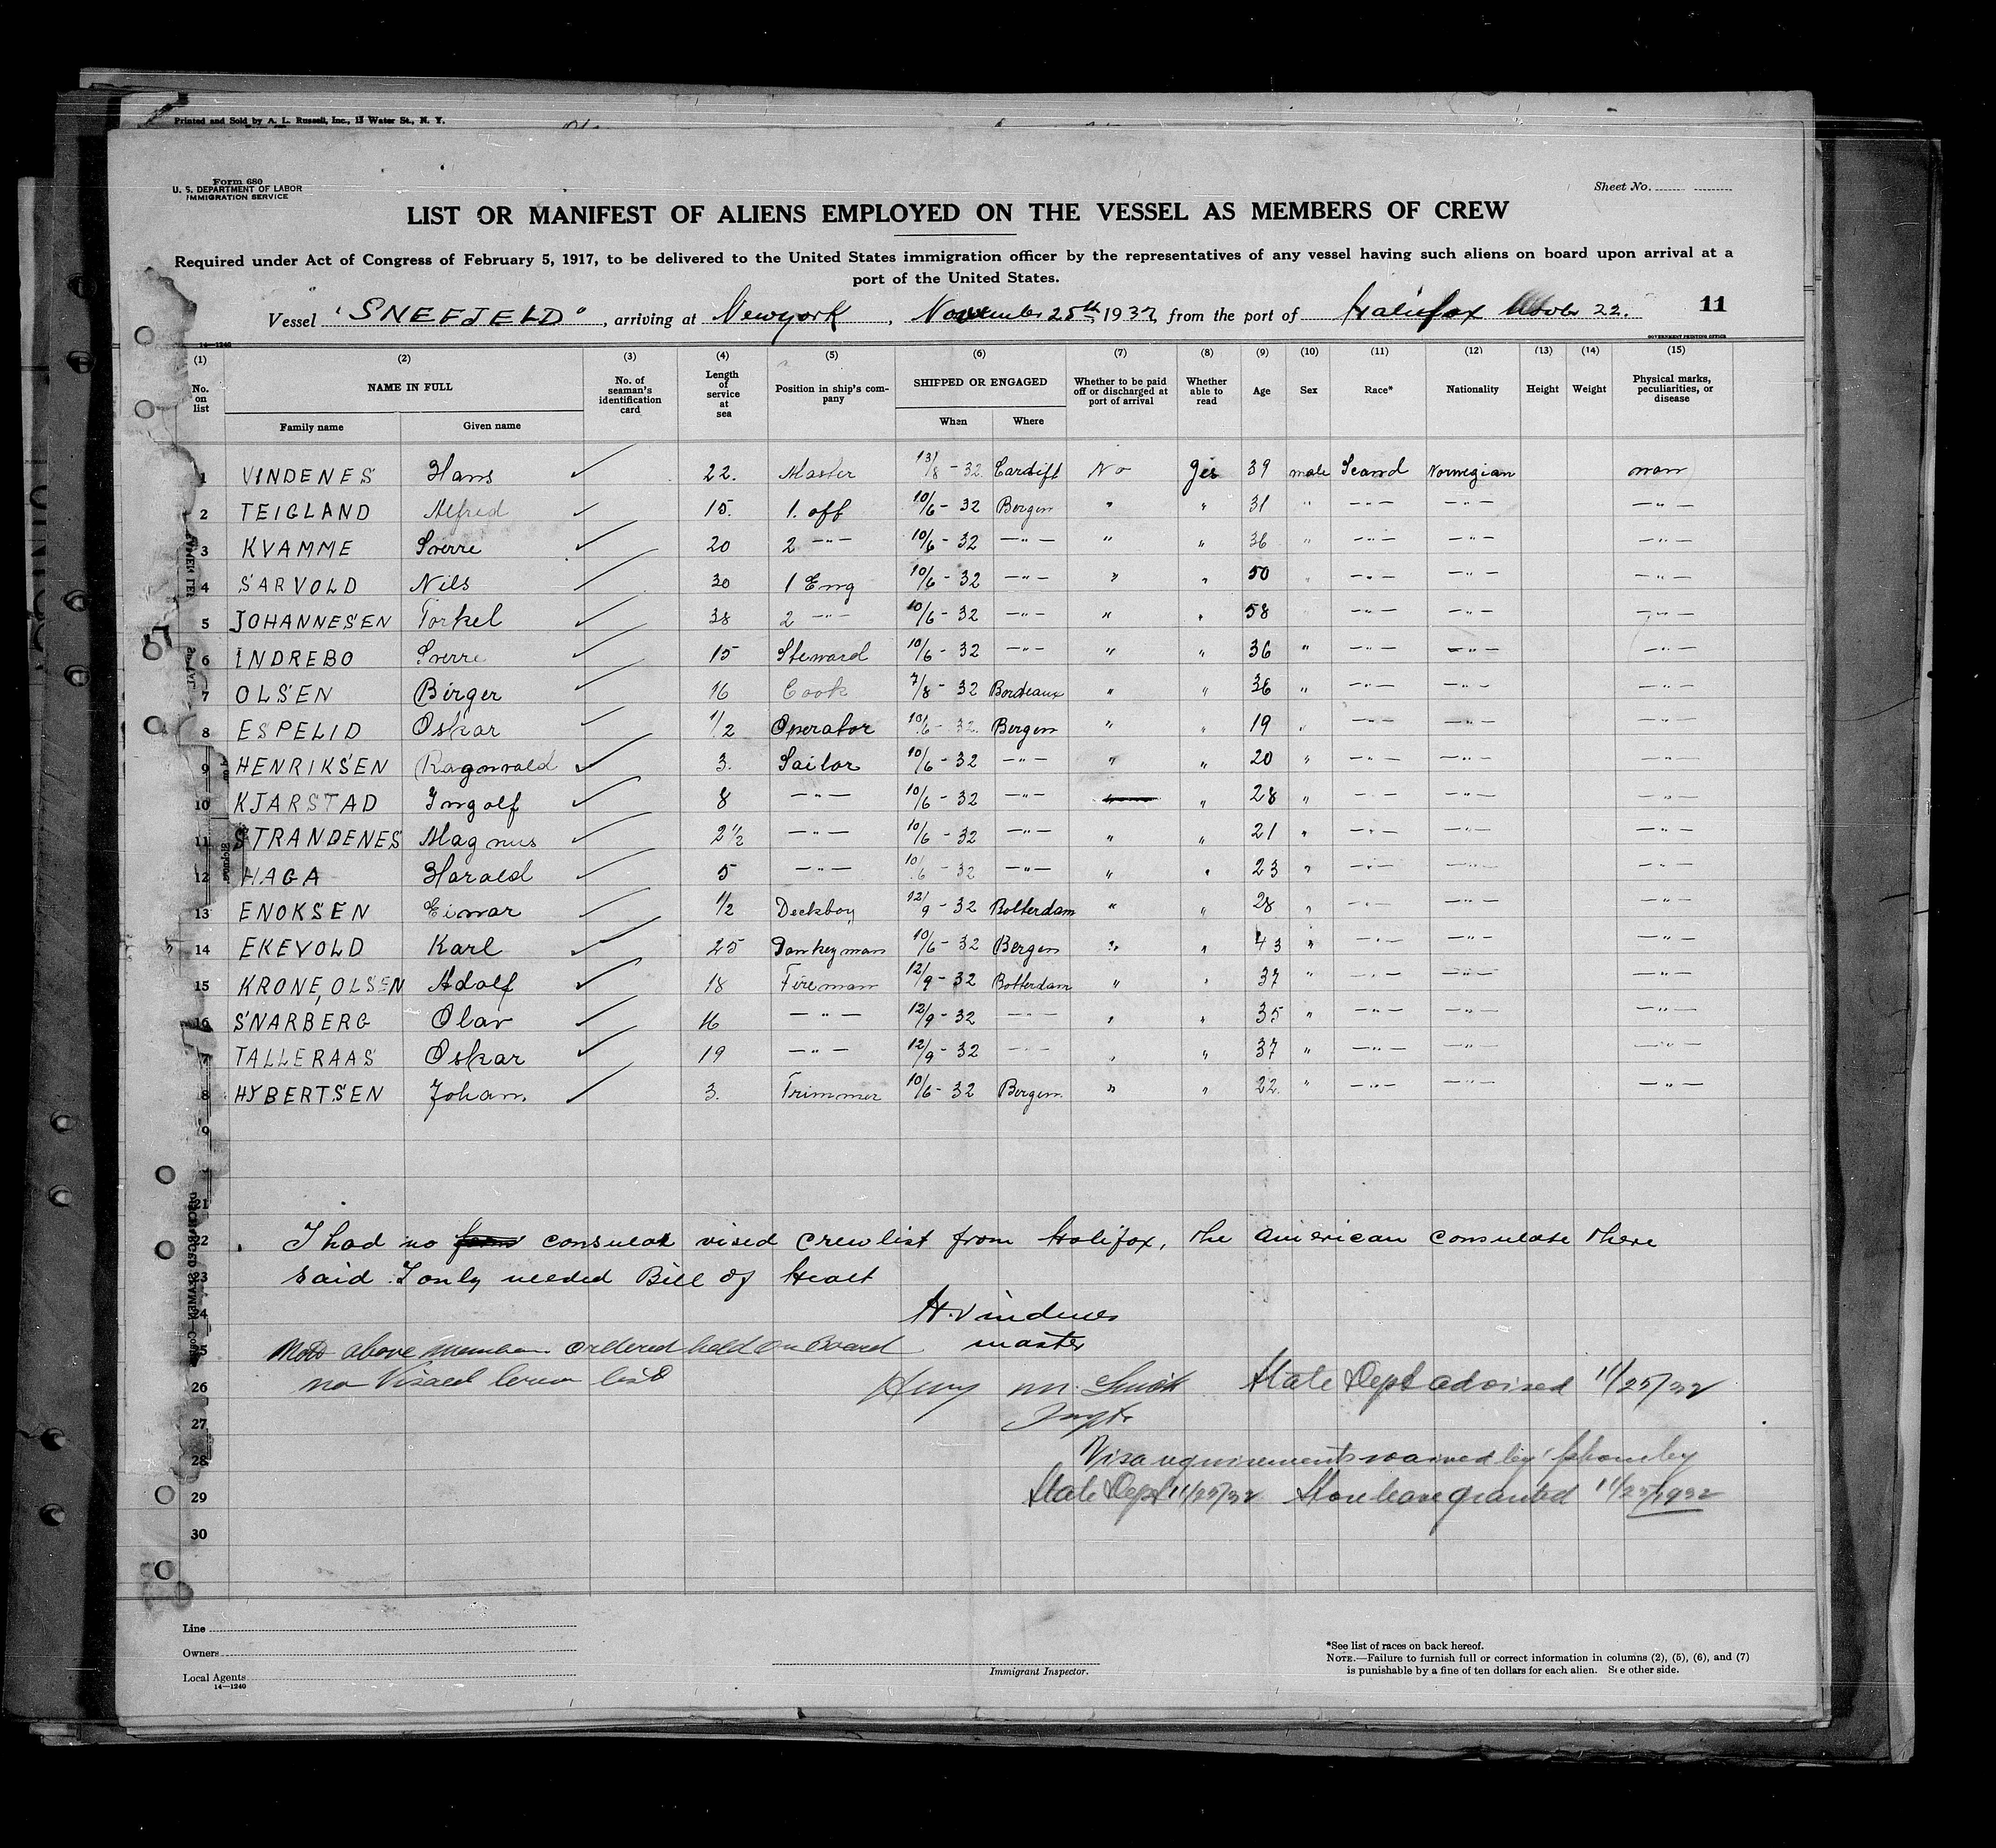 Printed and Sold by A. L. Russell, Inc., 13 Water St., N. Y.
Form 680
U. S. DEPARTMENT OF LABOR
IMMIGRATION SERVICE
Sheet No.
LIST OR MANIFEST OF ALIENS EMPLOYED ON THE VESSEL AS MEMBERS OF CREW
Required under Act of Congress of February 5, 1917, to be delivered to the United States immigration officer by the representatives of any vessel having such aliens on board upon arrival at a
port of the United States.
Vessel "SNEFJELD", arriving at Newyork, November 25th, 1932, from the port of Halifax Novbr 22. 11
14—1240 GOVERNMENT PRINTING OFFICE
(1) (2) (3) (4) (5) (6) (7) (8) (9) (10) (11) (12) (13) (14) (15)
No. on list NAME IN FULL No. of seaman's identification card Length of service at sea Position in ship's company SHIPPED OR ENGAGED Whether to be paid off or discharged at port of arrival Whether able to read Age Sex Race* Nationality Height Weight Physical marks, peculiarities, or disease
Family name Given name When Where
1 VINDENES Hans ✓ 22. Master 13/8 - 32 Cardiff No Yes 39 male Scand Norwegian non
2 TEIGLAND Alfred ✓ 15. 1. off 10/6 - 32 Bergen " " 31 " —"— —"— —"—
3 KVAMME Sverre ✓ 20 2 —"— 10/6 - 32 —"— " " 36 " —"— —"— —"—
4 SARVOLD Nils ✓ 30 1 Eng 10/6 - 32 —"— " " 50 " —"— —"— —"—
5 JOHANNESEN Torkel ✓ 38 2 —"— 10/6 - 32 —"— " " 58 —"— —"— —"—
6 INDREBO Sverre ✓ 15 Steward 10/6 - 32 —"— " " 36 " —"— —"— —"—
7 OLSEN Birger ✓ 16 Cook 7/8 - 32 Bordeaux " " 36 " —"— —"— —"—
8 ESPELID Oskar ✓ 1/2 Operator 10/6 - 32 Bergen " " 19 " —"— —"— —"—
9 HENRIKSEN Ragnvald ✓ 3. Sailor 10/6 - 32 —"— " " 20 " —"— —"— —"—
10 KJARSTAD Ingolf ✓ 8 —"— 10/6 - 32 —"— " 28 " —"— —"— —"—
11 STRANDENES Magnus ✓ 2 1/2 —"— 10/6 - 32 —"— " " 21 " —"— —"— —"—
12 HAGA Harald ✓ 5 —"— 10/6 - 32 —"— " " 23 " —"— —"— —"—
13 ENOKSEN Einar ✓ 1/2 Deckboy 12/9 - 32 Rotterdam " " 28 " —"— —"— —"—
14 EKEVOLD Karl ✓ 25 Donkeyman 10/6 - 32 Bergen " " 43 " —"— —"— —"—
15 KRONE, OLSEN Adolf ✓ 18 Fireman 12/9 - 32 Rotterdam " " 37 " —"— —"— —"—
16 SNARBERG Olav ✓ 16 —"— 12/9 - 32 —"— " " 35 " —"— —"— —"—
TALLERAAS Oskar ✓ 19 —"— 12/9 - 32 —"— " " 37 " —"— —"— —"—
8 HYBERTSEN Johan. ✓ 3. Trimmer 10/6 - 32 Bergen. " " 22 " —"— —"— —"—
9
21
22 I had no consulat vised crewlist from Halifax, the american consulate there
23 said I only needed Bill of Healt
24 H. Vindenes
25 master
above members ordered held on Board
26 no Visaed crew list Henry M. Smith State Dept advised 11/25/32
27 Insptr
28 Visa requirements waived by phone by
29 State Dept 11/25/32 Shore leave granted 11/25/1932
30
Line
Owners
Local Agents
14—1240
Immigrant Inspector.
*See list of races on back hereof.
NOTE.—Failure to furnish full or correct information in columns (2), (5), (6), and (7)
is punishable by a fine of ten dollars for each alien. See other side.